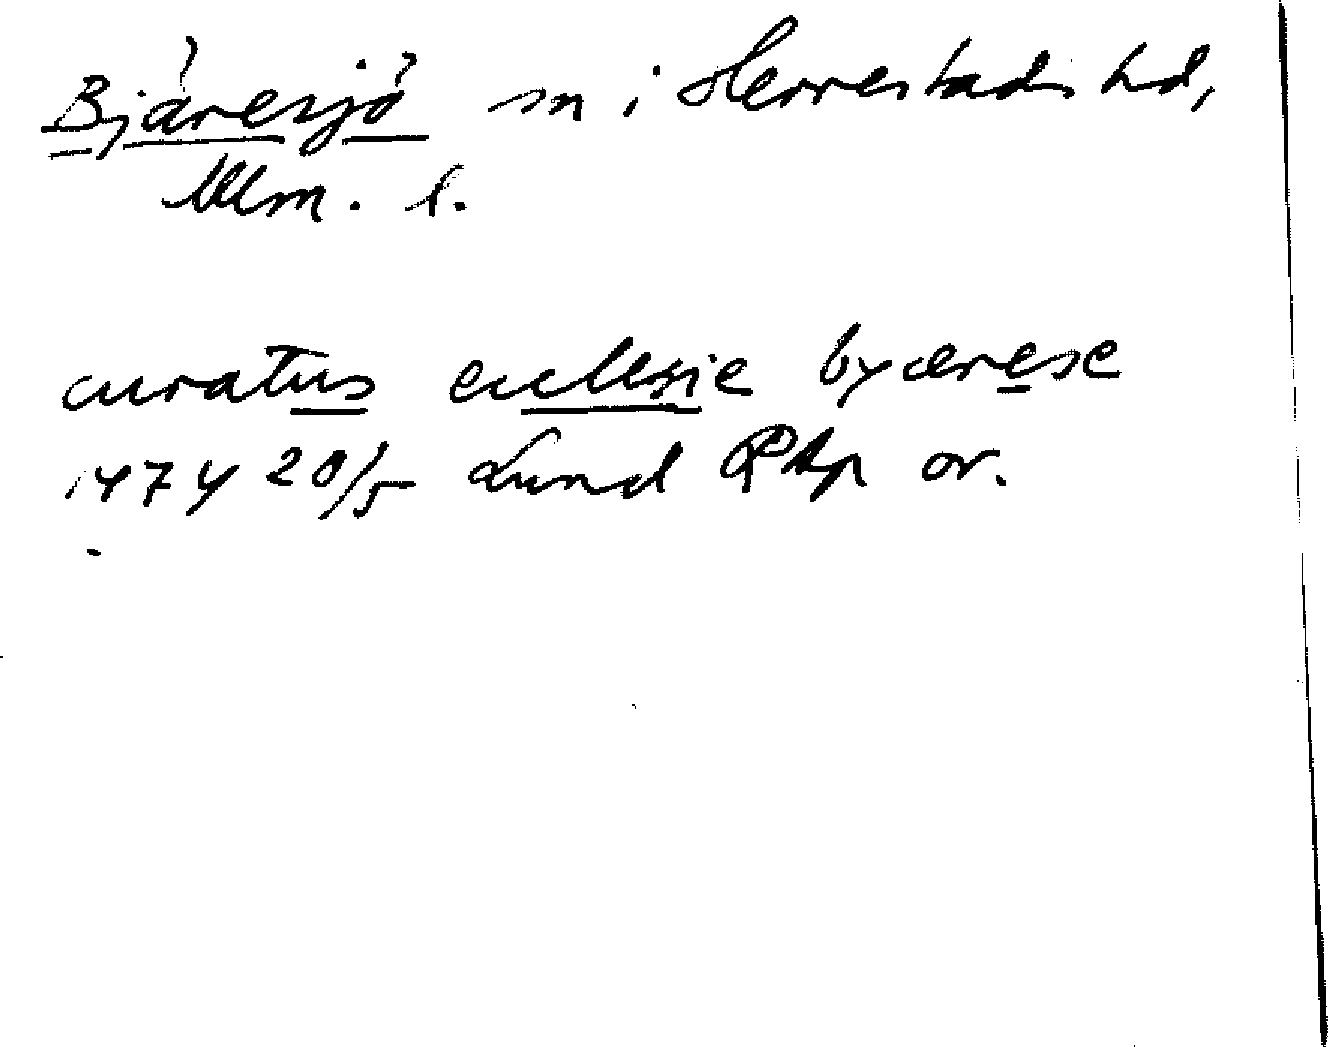 Bjäresjö sn i Herrestads hd,
Mlm. l.
curatus ecclesie byærese
1474 20/5 Lund RAp or.